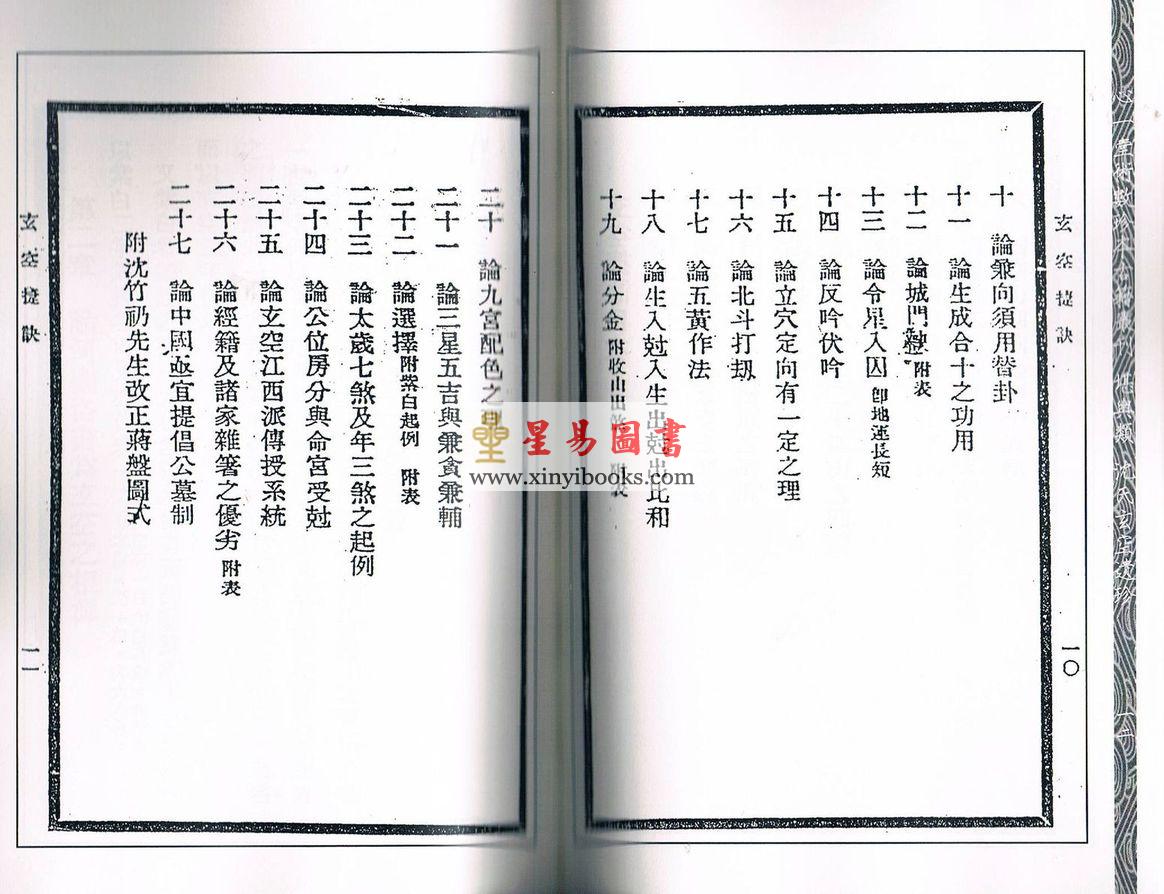 玄空捷訣
一〇
十 論兼向須用替卦
十一 論生成合十之功用
十二 論城門訣 附表
十三 論令星入囚 卽地運長短
十四 論反吟伏吟
十五 論立穴定向有一定之理
十六 論北斗打刼
十七 論五黃作法
十八 論生入尅入生出尅出比和
十九 論分金 附收山出 附表
二十 論九宮配色之
二十一 論三星五吉與兼貪兼輔
二十二 論選擇 附紫白起例 附表
二十三 論太歲七煞及年三煞之起例
二十四 論公位房分與命宮受尅
二十五 論玄空江西派傳授系統
二十六 論經籍及諸家雜箸之優劣 附表
二十七 論中國亟宜提倡公墓制
附沈竹礽先生改正蔣盤圖式
玄空捷訣
一一
星易圖書
www.xinyibooks.com